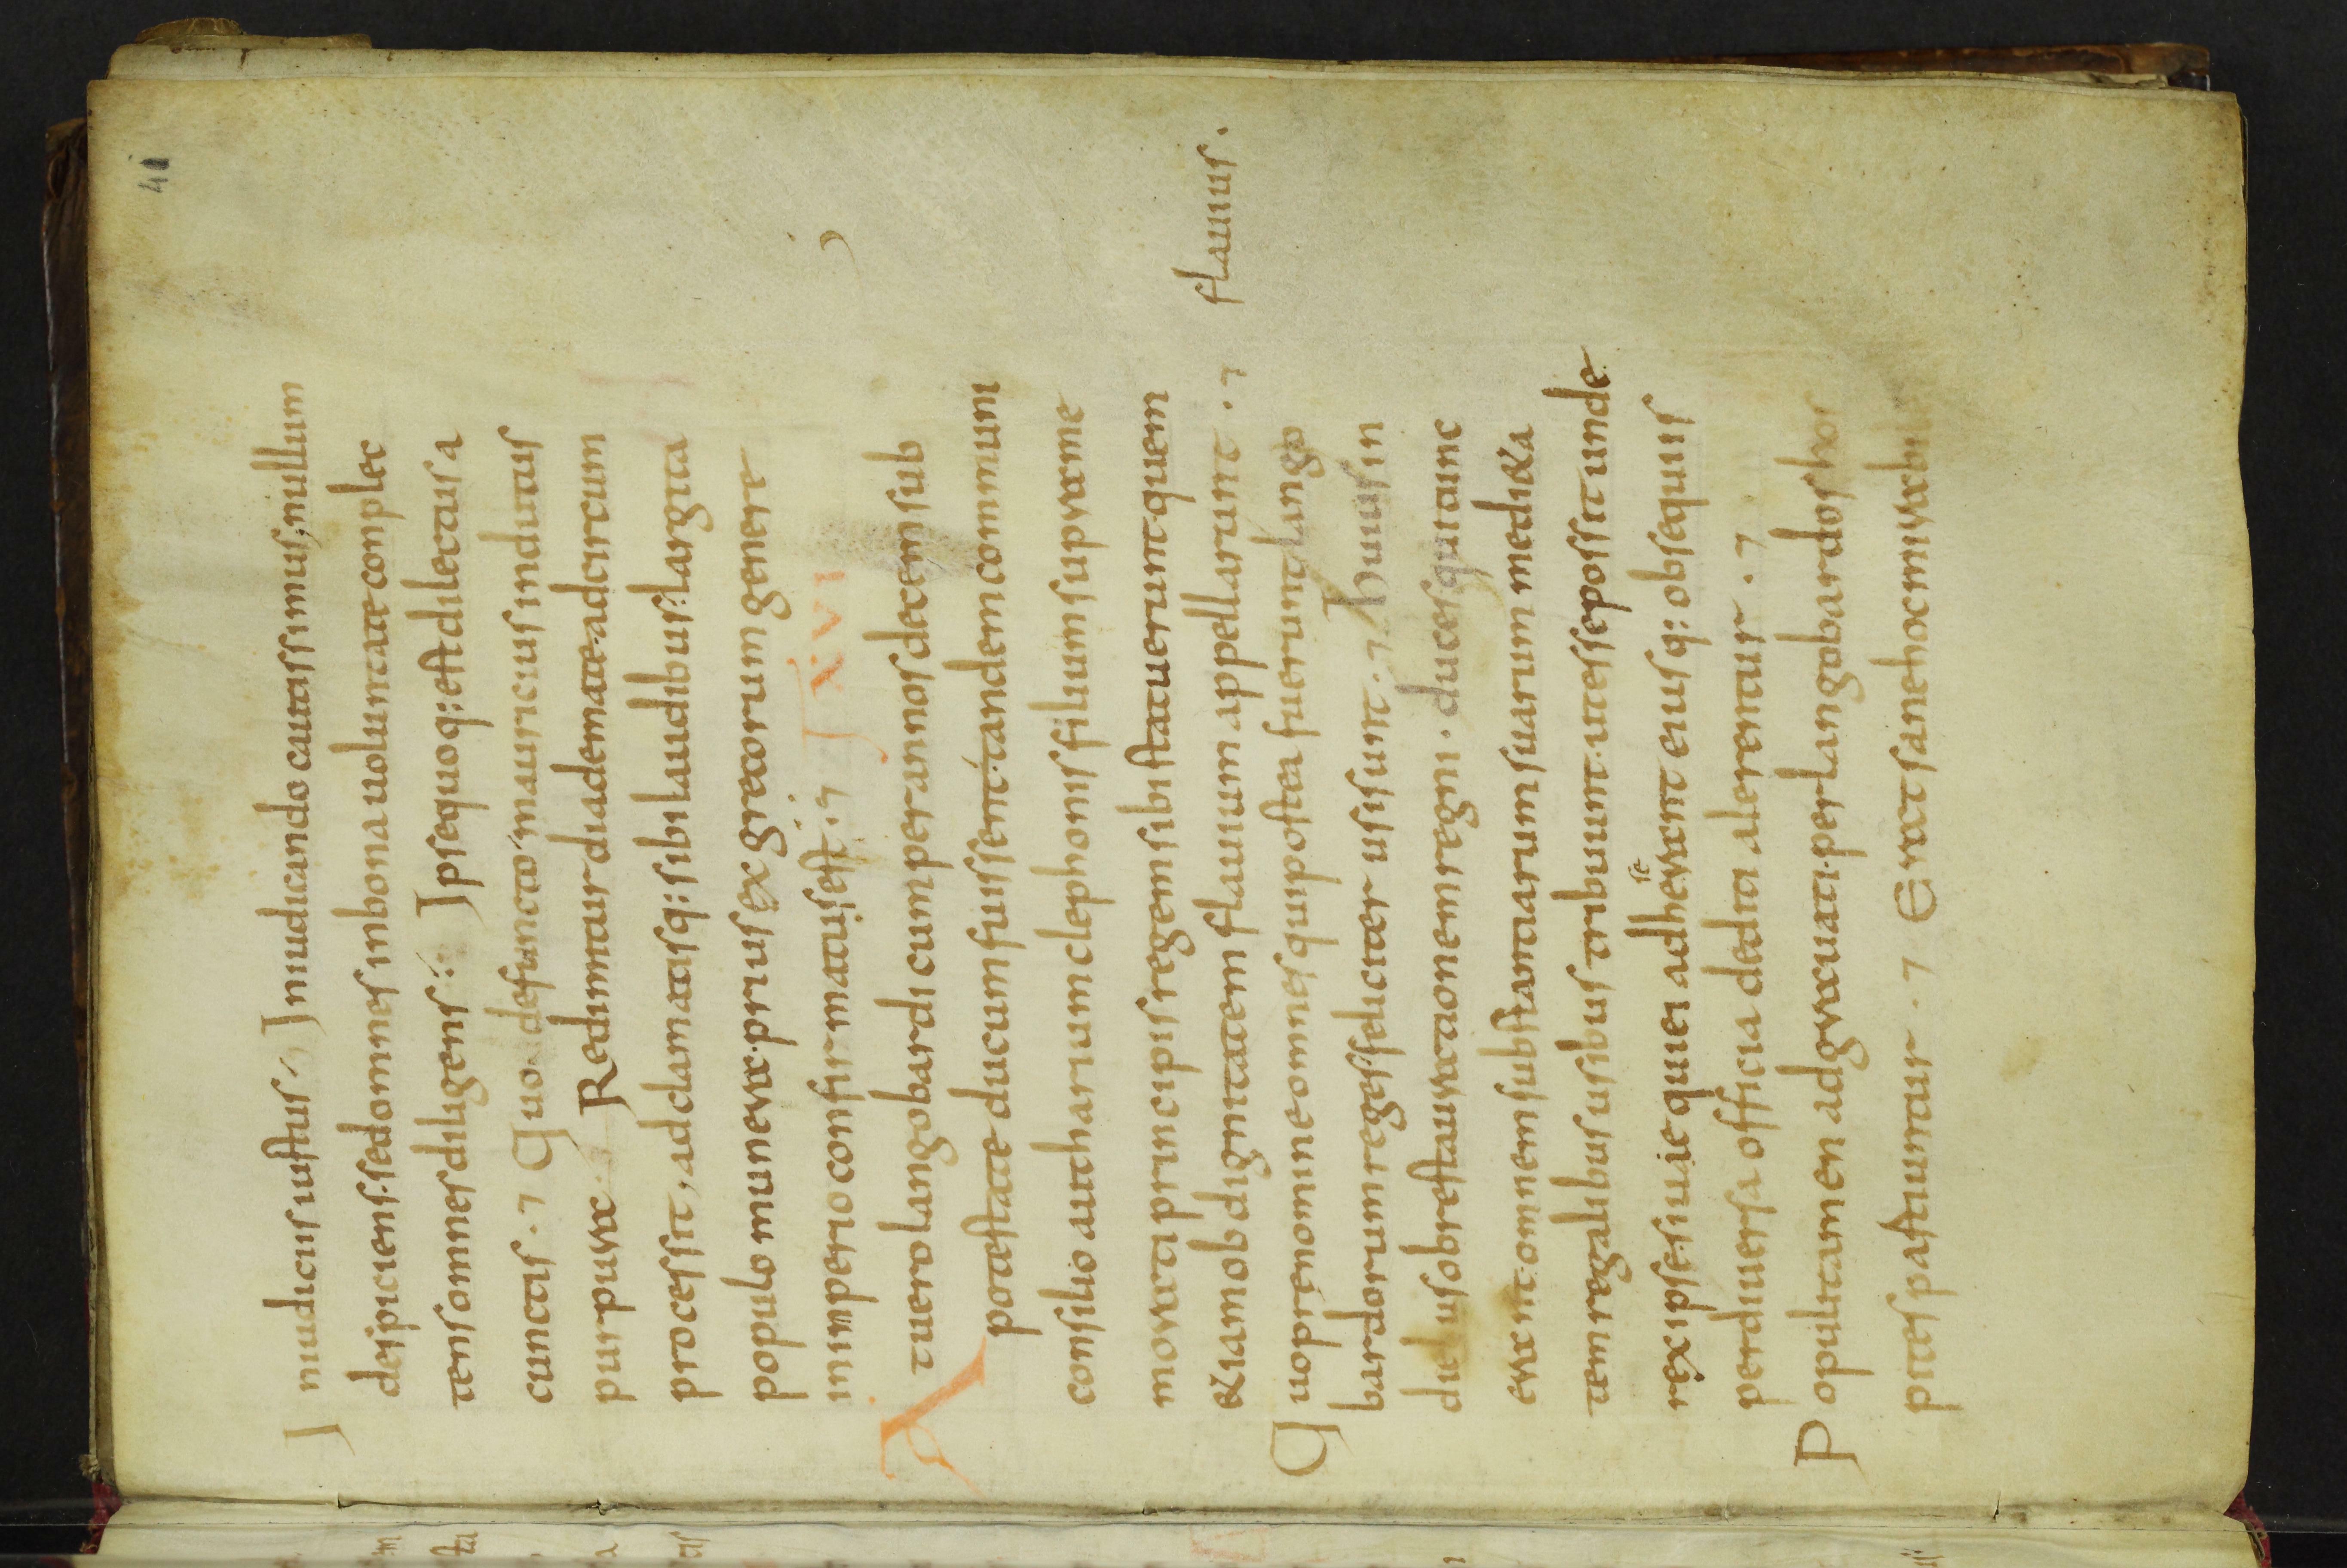 41
In iudiciis iustus. In iudicando cautissimus, nullum
despiciens. sed omnes in bona uoluntate complec
tens omnes diligens. Ipse quoq: est dilectus a
cunctis. Quo defuncto mauricius indutus
purpura. Redimitur diademate ad circum
processit, adclamatisq: sibi laudibus. largita
populo munera. prius ex grecorum genere
in imperio confirmatus est. XVI
At uero langobardi cum per annos decem sub
potestate ducum fuissent. tandem communi
consilio autharium clephonis filium supra me
morati principis regem sibi statuerunt quem
&iam ob dignitatem flauium appellarunt.
flauius.
Quo prenomine omnes qui postea fuerunt lango
bardorum reges feliciter usi sunt. huius in
diebus ob restaurationem regni. duces qui tunc
erant. omnem substantiarum suarum medi&a
tem regalibus usibus tribuunt. ut esse possit unde
rex ipse. siuie qui ei adhererent eiusq: obsequiis
se
per diuersa officia dediti alerentur.
Populi tamen adgrauati. per langobardos hos
pites partiuntur. Erat sane hoc mirabi